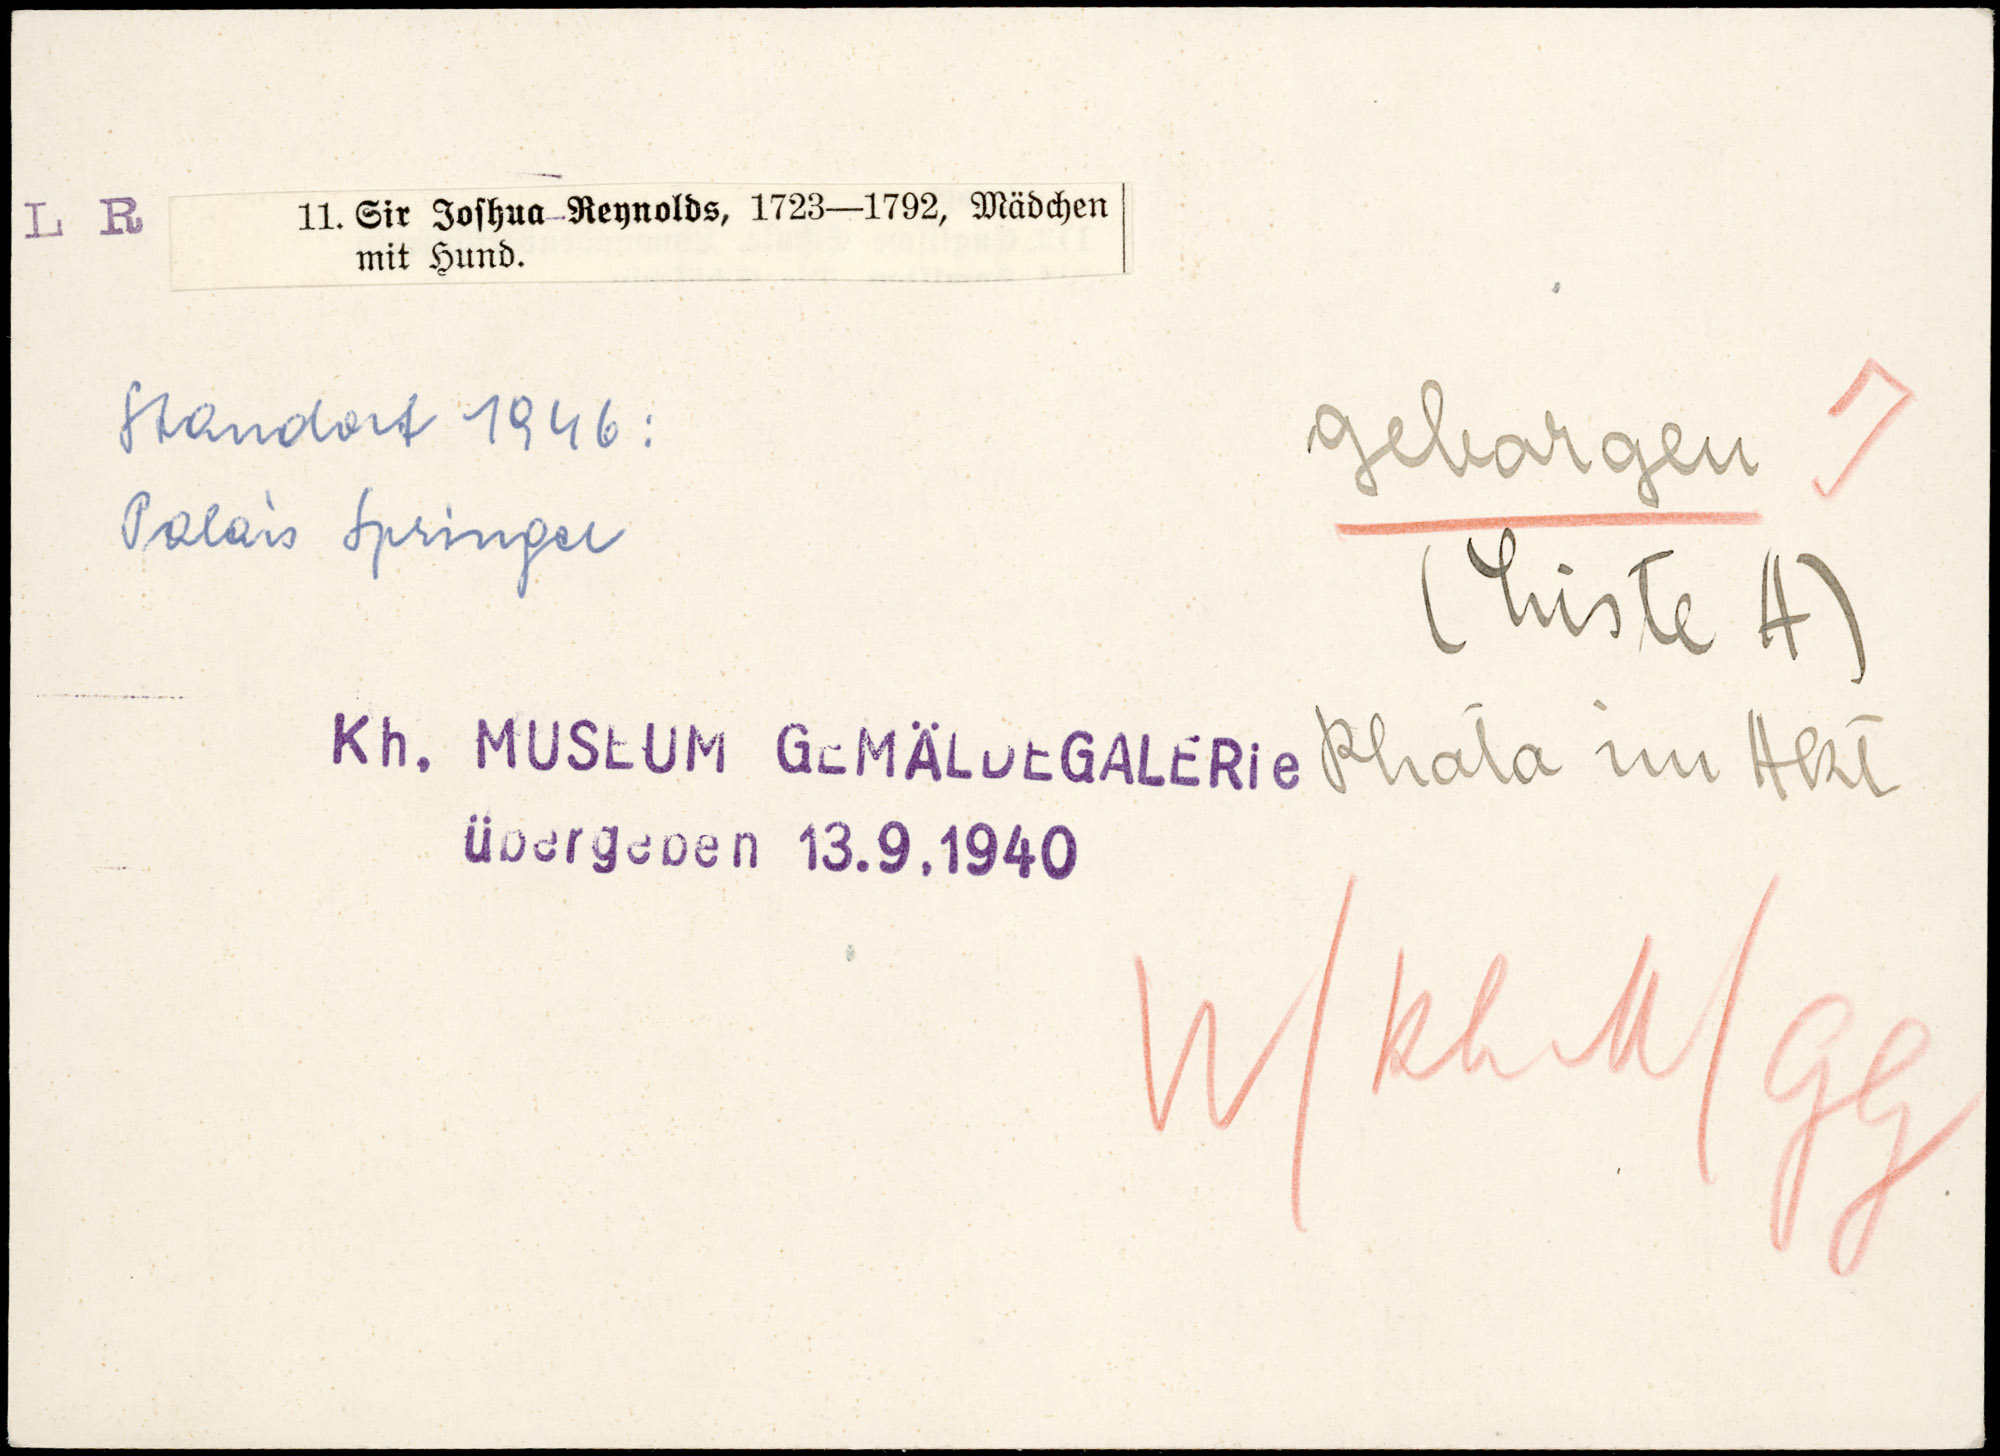 L R
11. Sir Joshua Reynolds, 1723—1792, Mädchen
mit Hund.
Standort 1946:
Palais Springer
geborgen
(Liste A)
Photo im Akt
Kh. MUSEUM GEMÄLDEGALERie
übergeben 13.9.1940
W/KhM/GG